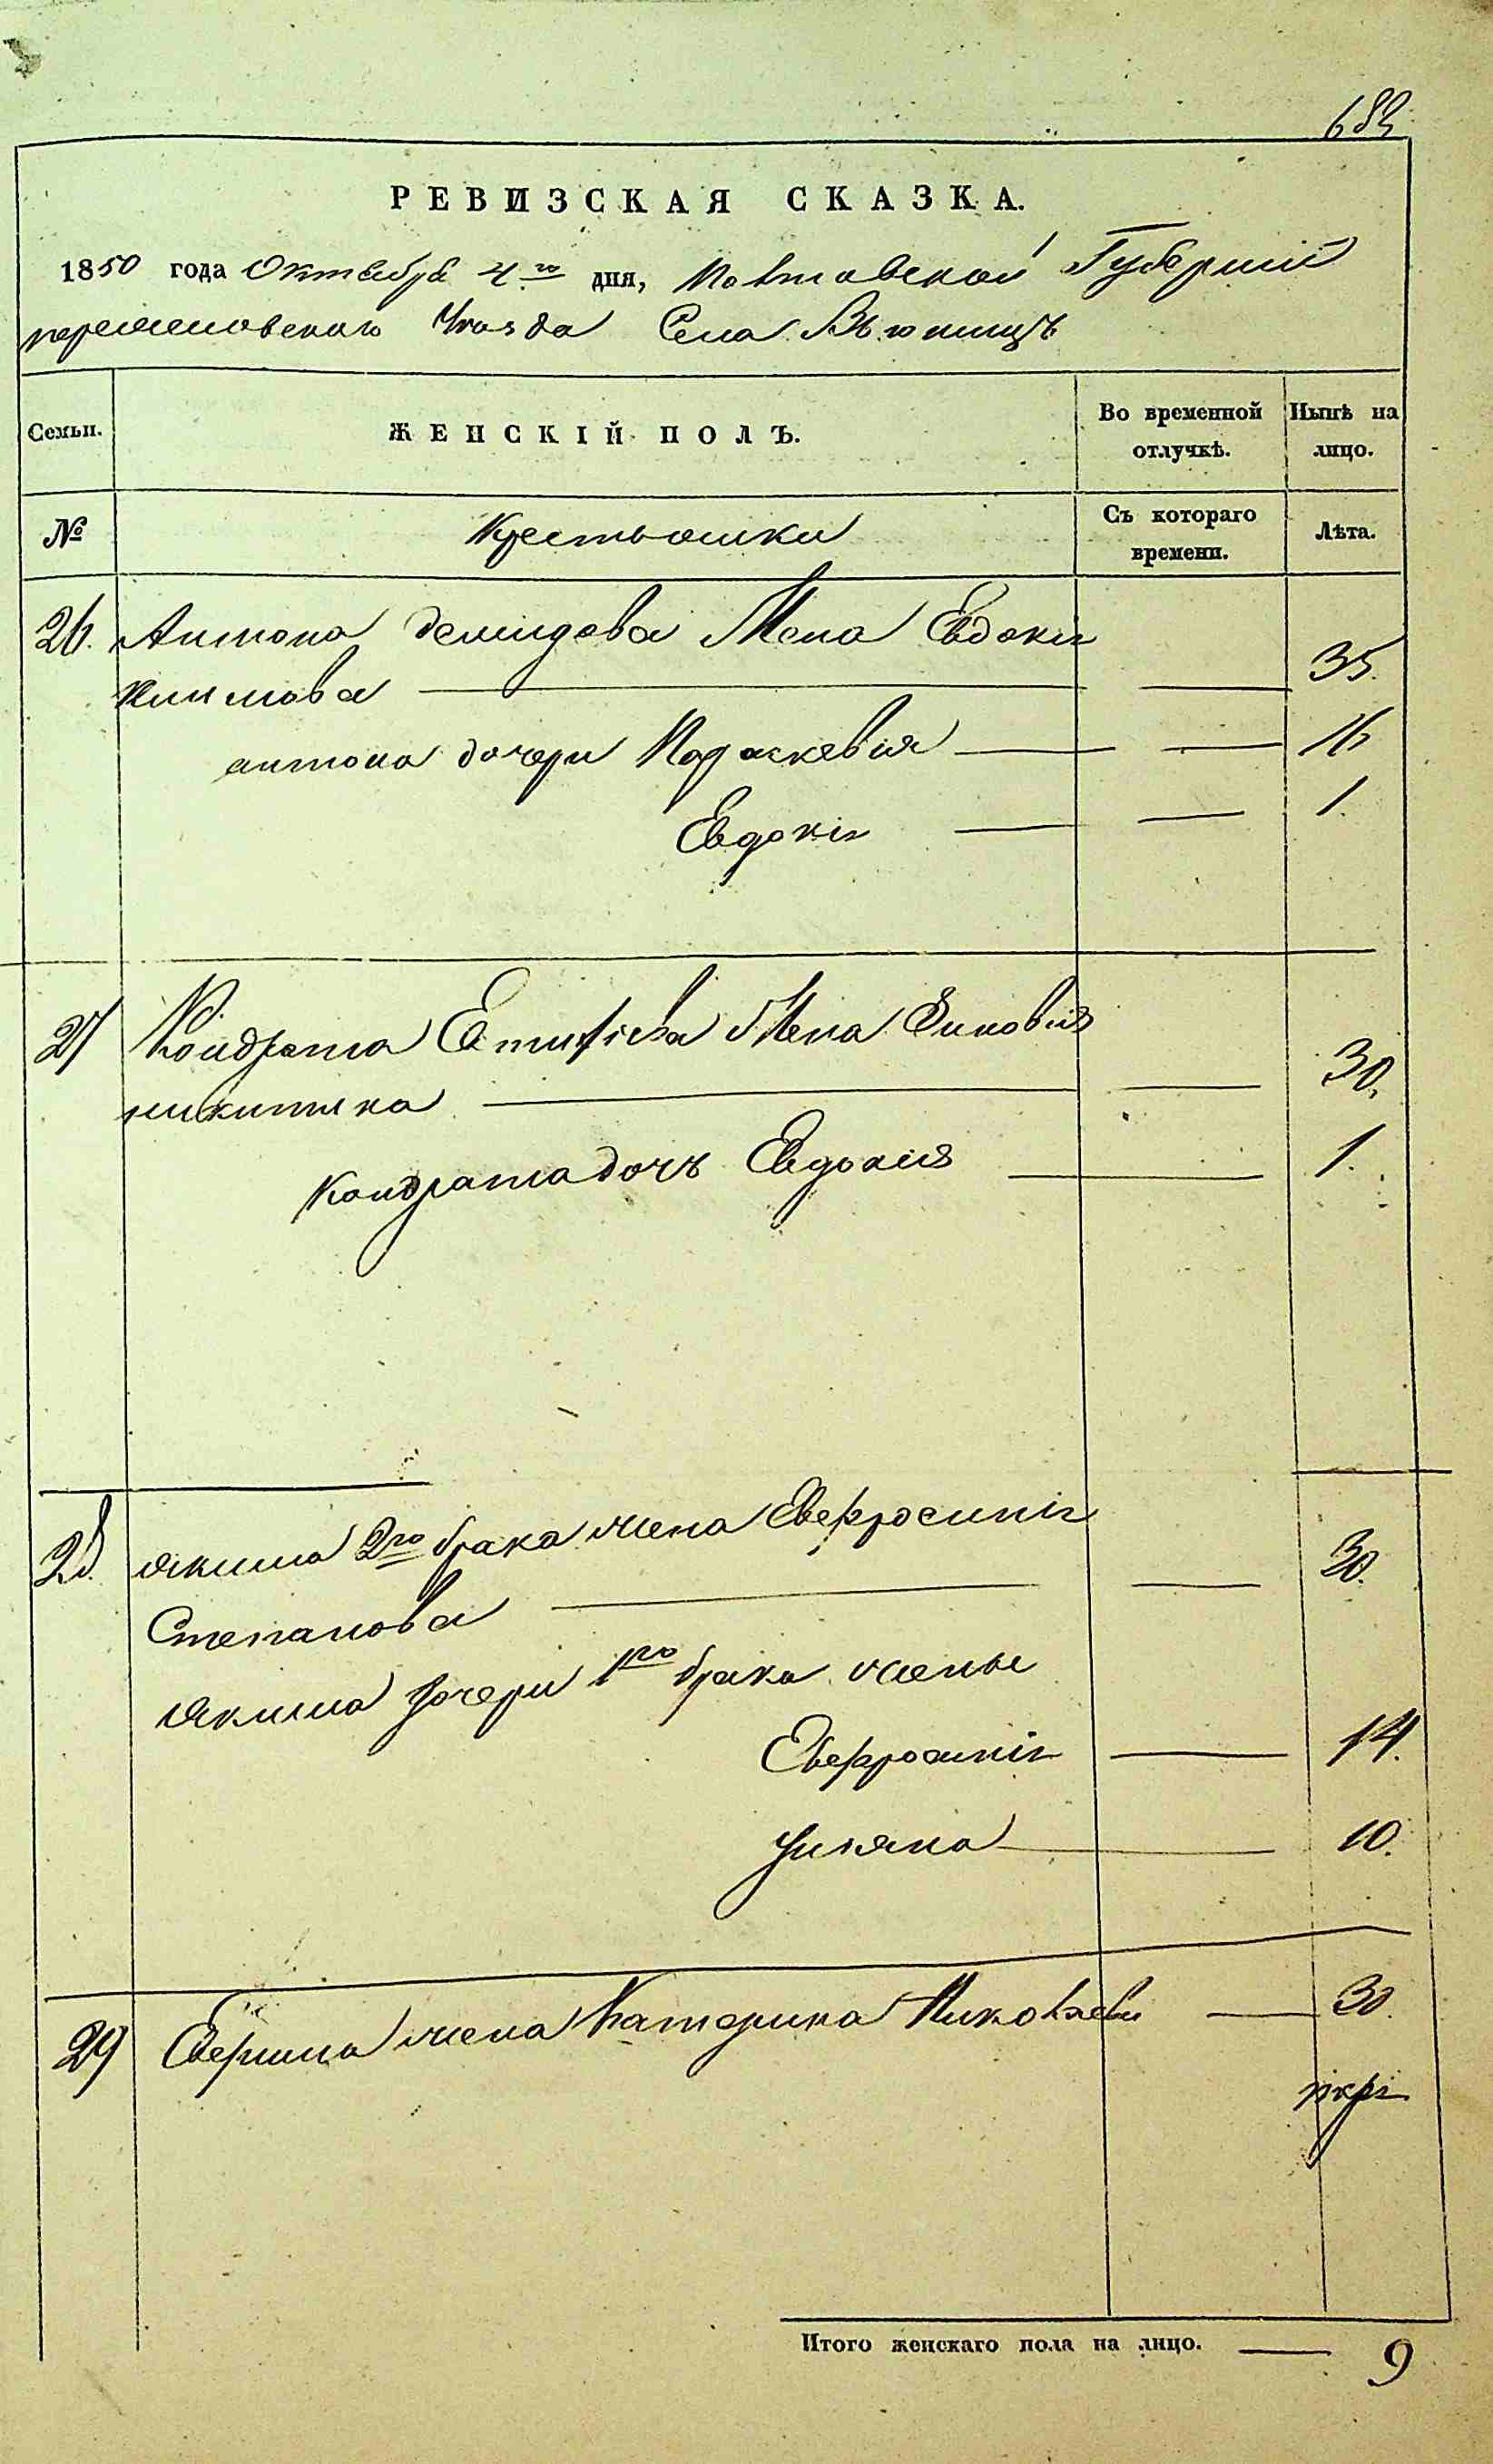 683
РЕВИЗСКАЯ СКАЗКА.
1850 года Октября 4го дня, Полтавской Губерніи
Уезда Села Вьюнищъ
Семьи. ЖЕНСКІЙ ПОЛЪ. Во временной отлучкѣ. Нынѣ на лицо.
№ Крестьянки Съ котораго времени. Лѣта.
26. Антона демидова Жена Евдокія
Климова 35.
антона дочери Параскевія 16
Евдокія 1.
27 Кондрата Жена Зиновия
никитина 30.
Кондрата дочь Евдокия 1.
28. Якима 2го брака жена Евфросинія
Степанова 30.
Якима дочери 1го брака жены
Евфросинія 14.
Ульяна 10.
29 жена Катерина Николаева 30.
Итого женскаго пола на лицо. 9